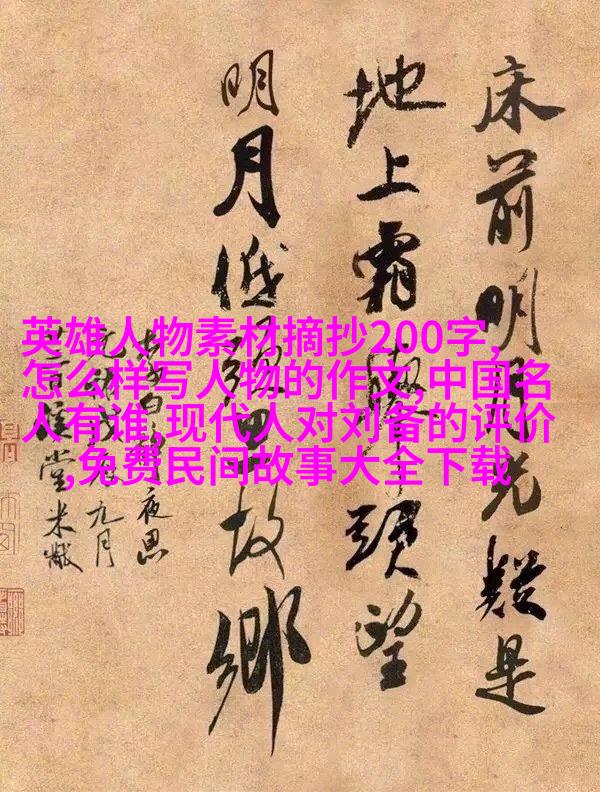 床前明月光疑是
地上霜舉頭望
明月低頭思故鄉
白夜思
九月
堂米黻
英雄人物素材摘抄200字,
怎么样写人物的作文,中国名
人有谁,现代人对刘备的评价
,免费民间故事大全下载